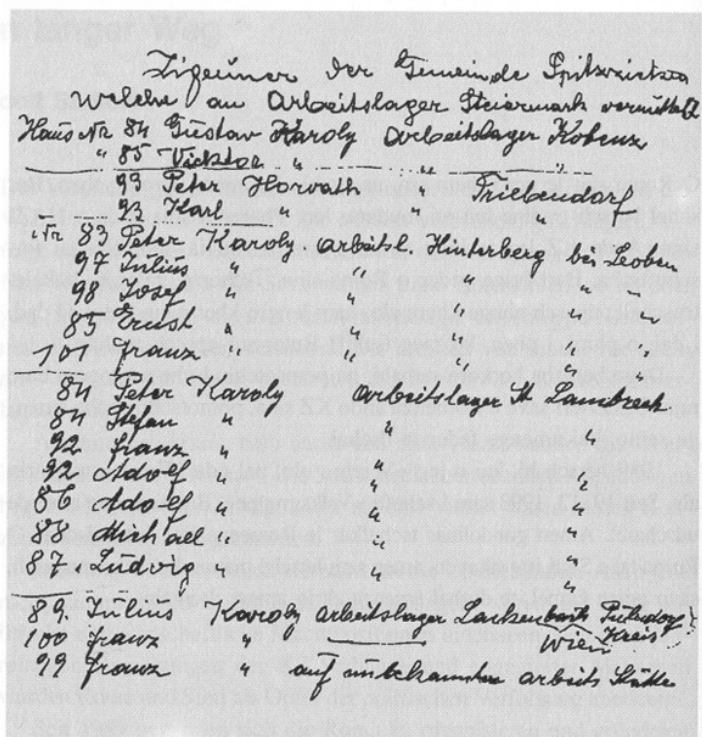 Zigeuner der Gemeinde Spitzzicken
Welche an Arbeitslager Steiermark vermittelt
Haus Nr 84 Gustav Karoly Arbeitslager Kobenz
" 85 Vicktor " " "
93 Peter Horvath " Triebendorf
93 Karl " " "
Nr. 83 Peter Karoly Arbeitsl. Hinterberg bei Leoben
97 Julius " " " " "
98 Josef " " " " "
85 Ernst " " " " "
101 Franz " " " " "
84 Peter Karoly Arbeitslager St Lambrech
84 Stefan " " "
92 Franz " " "
92 Adolf " " "
86 Adolf " " "
88 Michael " " "
87 Ludvig " " "
89. Julius Karoly Arbeitslager Lackenbach
100 Franz " Wien Kreis
99 Franz " auf unbekannten Arbeits Stätte